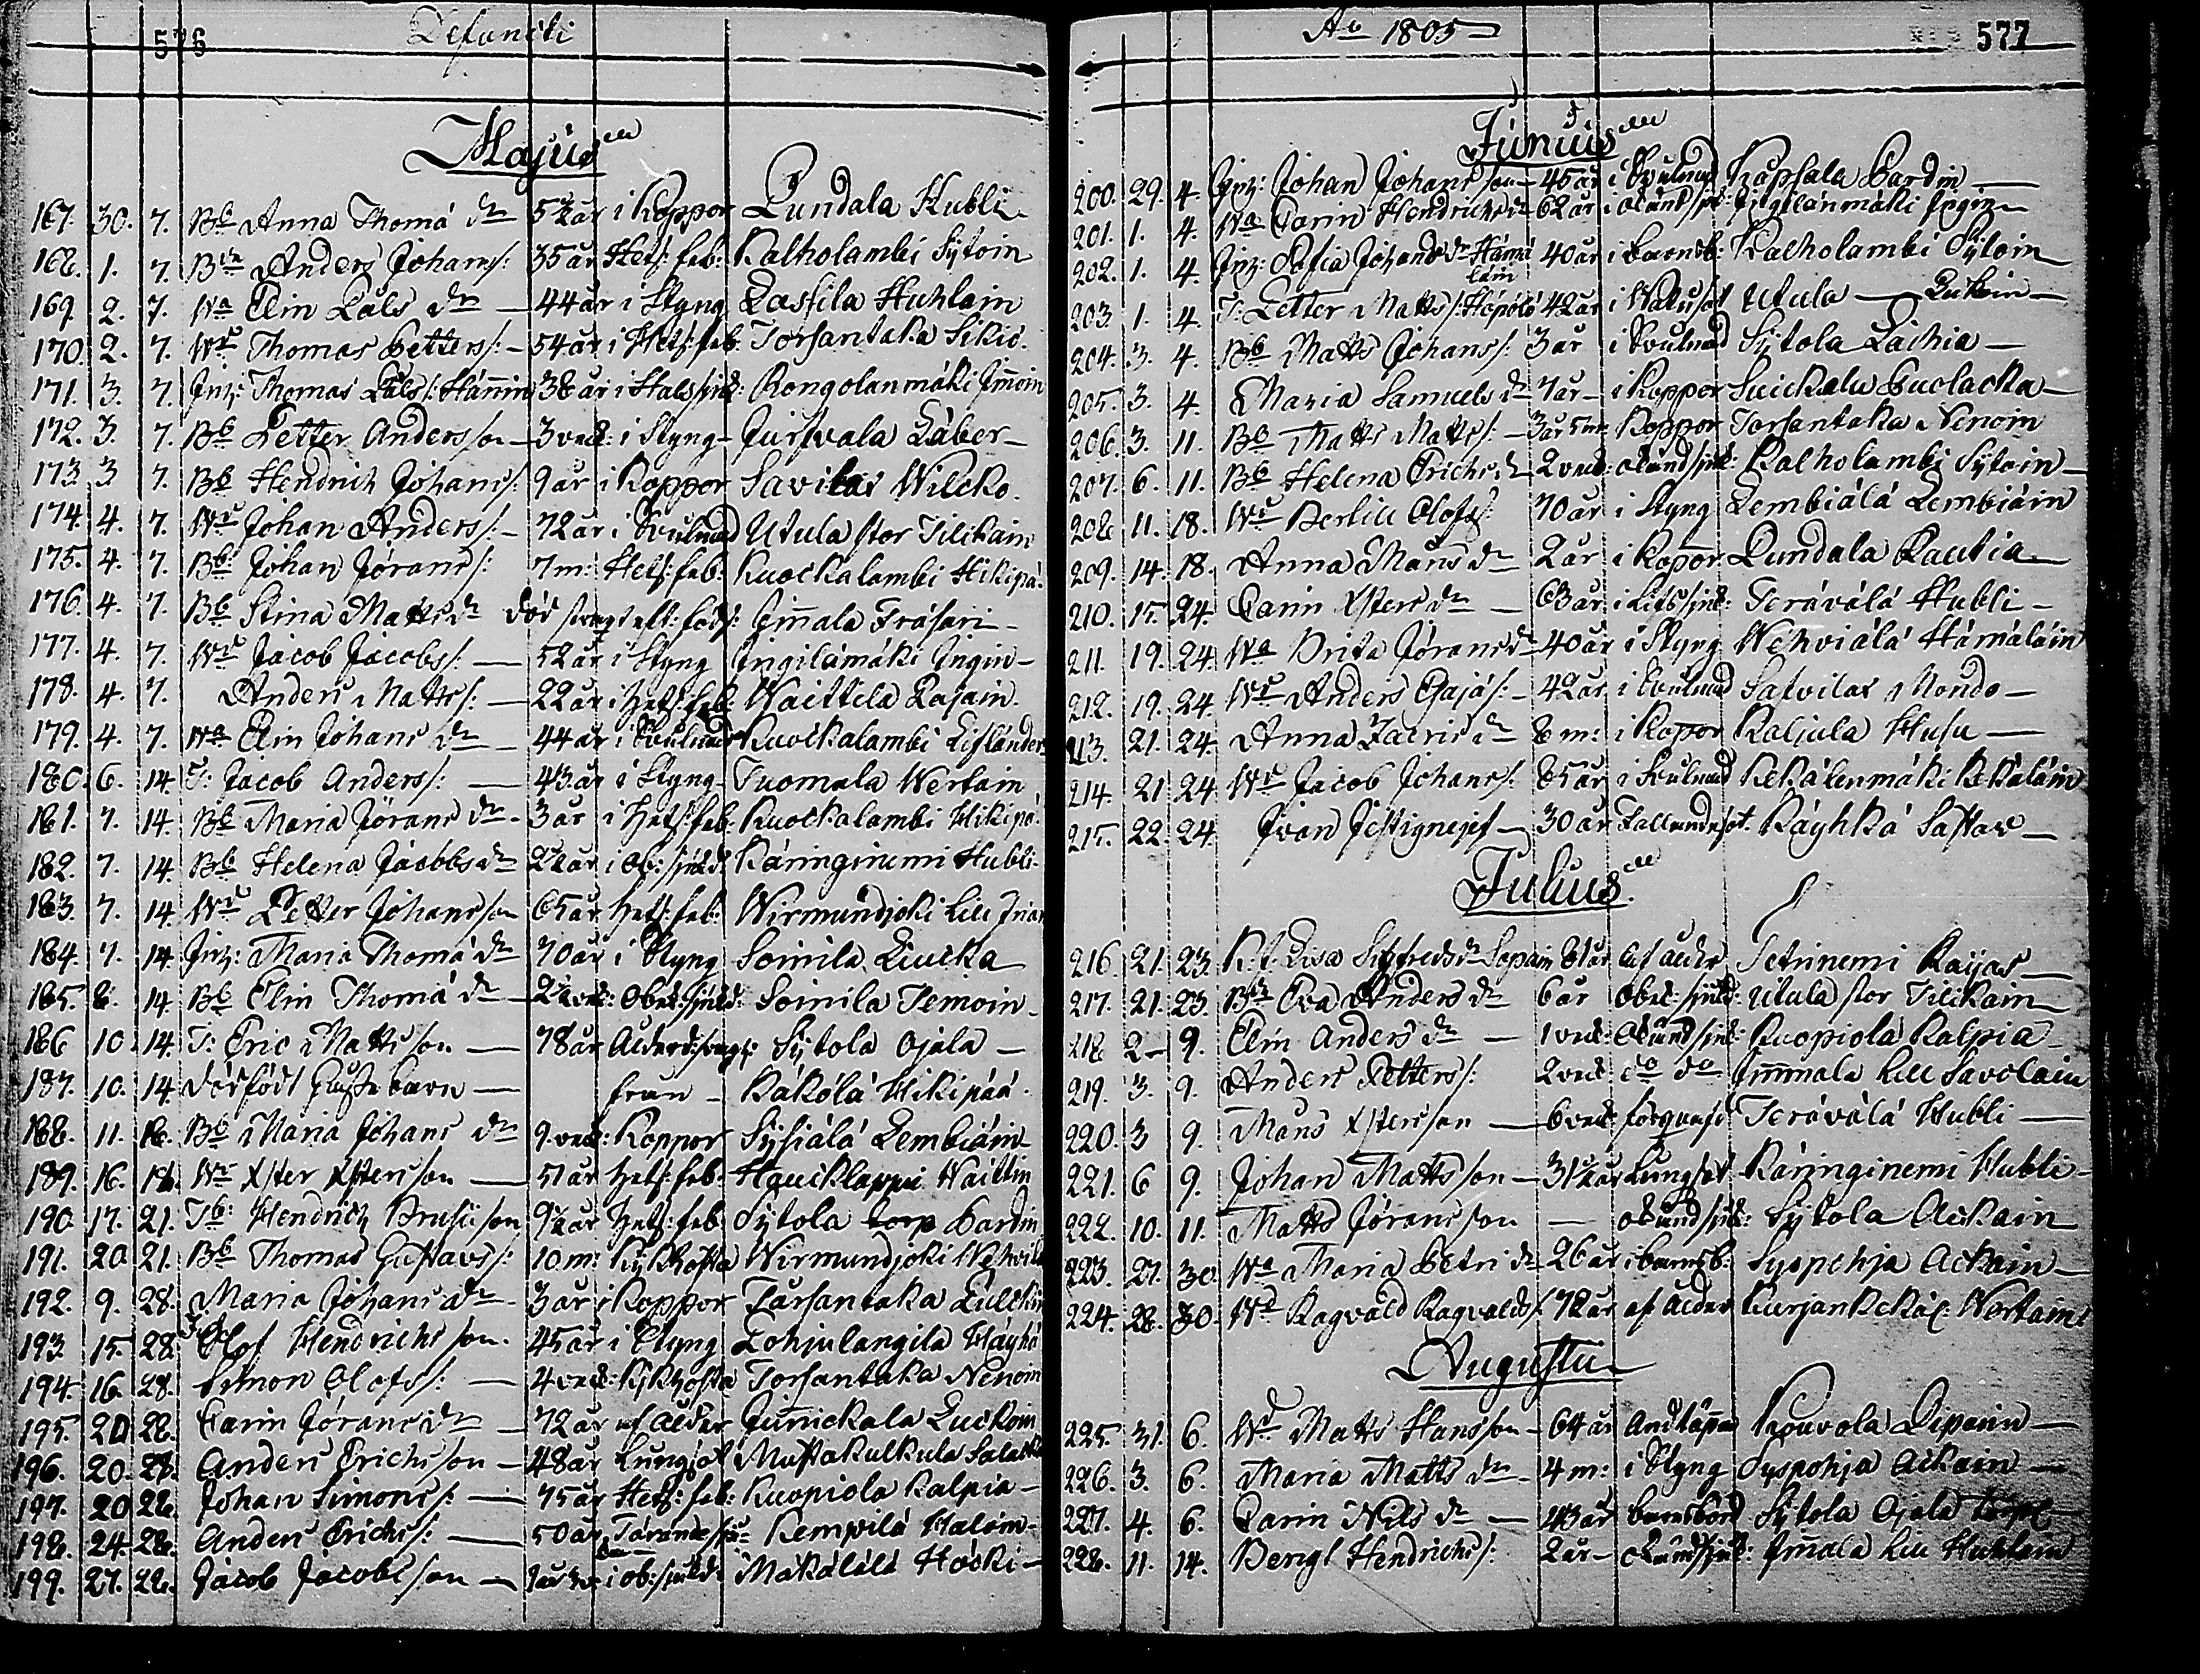 576 Defuncti
Majus
167. 30. 7. Bb Anna Thomá dr 5½ år i Koppor Lundala Hubli
168. 1. 7. Anders Johans/: 35 år Hets: feb: Kalholambi Sytoin
169. 2. 7. Wa Elin Påls dr — 44 år i Styng Lassila Huhlain
170. 2. 7. Wr Thomas Petters/: — 54 år i Hets: feb: Torsantaka Sikiö.
171. 3. 7. Inh: Thomas Påls/: Hännin 38 år i Hals sjuk: Rongolanmäki Immoin
172. 3. 7. Bb Petter Andersson — 3 veck: i Styng — Jursvala Läber —
173. 3 7. Bb Hendrich Johans/: 9 år i Koppor Savilax Wilcko.
174. 4. 7. Wr Johan Anders/: — 72 år i Svulnad Utula stor Tilikain
175. 4. 7. Bb: Johan Jörans/: 7 m: Hets: feb: Kuockalambi Hikipä:
176. 4. 7. Bb Stina Matts dr död straxt eft: föds: Immala Fräsari —
177. 4. 7. Wr Jacob Jacobs/: — 52 år i Styng Ingilämäki Ingin —
178. 4. 7. Anders Matts/: — 22 år i Hets: feb: Waittila Lajain.
179. 4. 7. Wa Elin Johans dr — 44 år i Svulnad Kuockalambi Lifländer
180. 6. 14. T: Jacob Anders/: — 43 år i Styng — Tuomala Wertain
181. 7. 14. Bb Maria Jörans dr — 3 år i Hets: feb: Kuockalambi Hikipä:
182. 7. 14. Bb Helena Jacobs dr 2½ år i Ob: sjukd: Käringinemi Hubli —
183. 7. 14. Wr Petter Johansson 65 år Hets: feb: Wirmundjoki Lill
184. 7. 14. Inh: Maria Thomä dr 70 år i Styng Soinila Liucka
185. 8. 14. Bb Elin Thomä dr — 2½ veck: Obek: sjukd: Soinila Temoin —
186 10. 14. T: Eric Mattsson — 78 år Ålderd: svagh: Sytola Ojala —
187. 10. 14 dödfödt Gosse barn — från — Käkölä Hikipää.
188. 11. 18. Bb Maria Johans dr 9 veck: Koppor Sysiälä Lembiäin
189. 16. 18. Wr Xster Xstersson — 51 år Hets: feb: Haucklappi Waittin
190. 17. 21. Tb: Hendrich Brusiison 9½ år Hets: feb: Sytola torp Pardin
191. 20 21. Bb Thomas Gustavs/: 10 m: Kykhosta Wirmundjoki
192. 9. 28. Maria Johans dr — 3 år i Koppor Tarsantaka
193. 15. 28. Olof Hendrichsson. 45 år i Styng Lohjulangila Häyhä
194. 16. 28. Simon Olofs/: — 4 veck: Kykhosta Torsantaka Nenoin
195. 20 28. Carin Jörans dr — 72 år af ålder Junnickala Luckoin
196. 20. 28. Anders Erichsson — 48 år Lungsot Mustakulkula
197. 20 28. Johan Simons/: — 75 år Hets: feb: Kuopiola Kalpia —
198. 24. 28. Anders Erichs/: — 50 år Tärande sju: Kempilä Haloin —
199. 27. 28. Jacob Jacobsson — i ob: sjukd: Mäkälälä Höcki —
Ao 1805 577
Junius
200. 29. 4. Inh: Johan Johansson — 45 år i Svulnad Kapsala Pardin —
201. 1. 4. Wa Carin Hendrichs dr 62 år i okund sju: Ingilänmäki Ingin —
202. 1. 4. Inh: Sofia Johans dr Hämäläin 40 år i barnsb: Kalholambi Sytoin
203. 1. 4. T: Petter Matts/: Höpölä 42 år i Watusot Utula — Lukoin —
204. 3. 4. Bb Matts Johans/: 3 år i Svulnad Sytola Laihia —
205. 3. 4. Maria Samuels dr 7 år — i Koppor Suickala Puolacka —
206. 3. 11. Bb Matts Matts/: — 3 år 5 m: Koppor Torsantaka Nenoin
207. 6. 11. Bb Helena Erichs dr 2 veck: okänd sjuk: Kalholambi Sytoin —
208 11. 18. Wr Bertill Olofs/: 70 år i Styng Lembiälä Lembiäin
209. 14. 18. Anna Måns dr 2 år i Koppor Lundala Rautia —
210. 15. 24. Carin Xsters dr — 63 år i Lids sjuk: Terävälä Hubli —
211. 19. 24. Wa Brita Jörans dr 40 år i Styng Wehviälä Hämäläin
212. 19. 24. Wr Anders — 42 år i Svulnad Safvilax Mondo —
213. 21. 24. Anna dr 8 m: i Koppor Kaljula Husu —
214. 21. 24. Wr Jacob Johans/: 85 år i Svulnad Kekälenmäki Kekäläin
215. 22. 24. Ivan — 30 år Fallandesot. Räyhkä Sastav —
Julius
216. 21. 23. Lisa Sigfreds dr Sopain 81 år af ålder Tetrinemi Raijas —
217. 21. 23. Eva Anders dr 6 år obek: sjuk: Utula stor Tilikain —
218 2 — 9. Elin Anders dr — 1 veck: okänd sjuk: Kuopiola Kalpia —
219. 3. 9. Anders Petters/: 2 veck do do Immala Lill Savolain
220. 3 9. Måns Xstersson — 6 veck Terävälä Hubli —
221. 6 9. Johan Mattsson — 31½ år Lungsot Käringinemi Hubli —
222. 10. 11. Matts Jöransson — okänd sjuk: Sytola Ackain
223. 27. 30. Wa Maria Petri dr 26 år i barnsb: Syspohja Ackain —
224. 28. 30. Wr Ragvald Ragvalds/: 72 år af ålder Wertain
Augustu
225. 31. 6. Wr Matts Hansson — 64 år Andtäppa Kouvola Liponin —
226. 3. 6. Maria Matts dr — 4 m: i Styng Syspohja Ackain —
227. 4. 6. Carin Nils dr — 43 år barnsbörd Sytola Ojala torp
228. 11. 14. Bengt Hendrichs/: 2 år — okänd sjuk: Immala Lill Huhlain